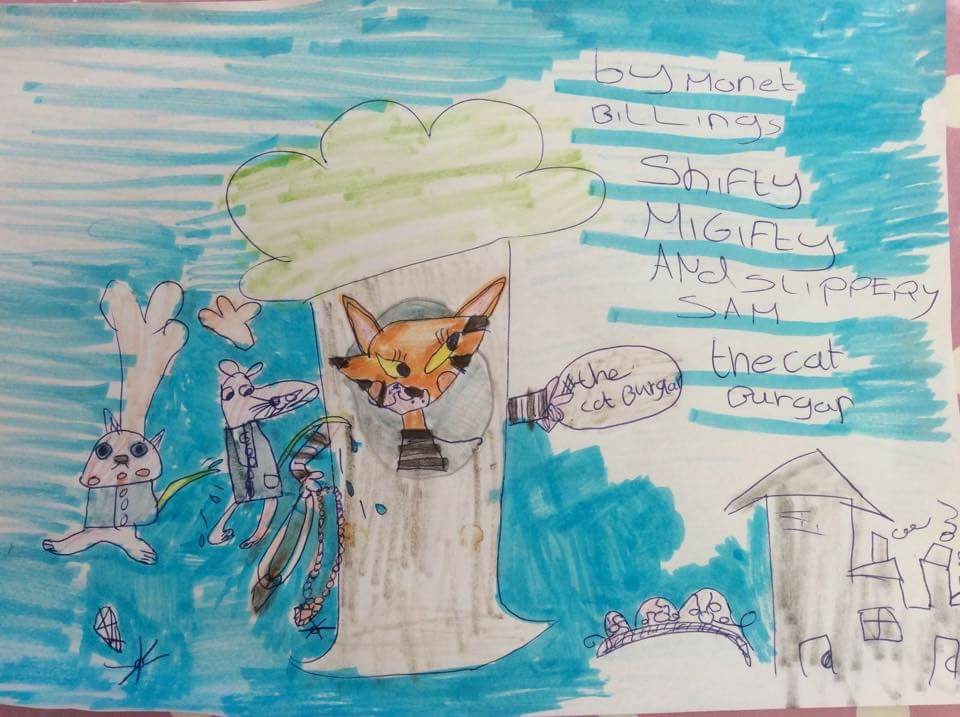 by Monet
BILLings
Shifty
MIGIFty
ANd SLIPPERY
SAM
the cat
Burgar
the
cat Burglar